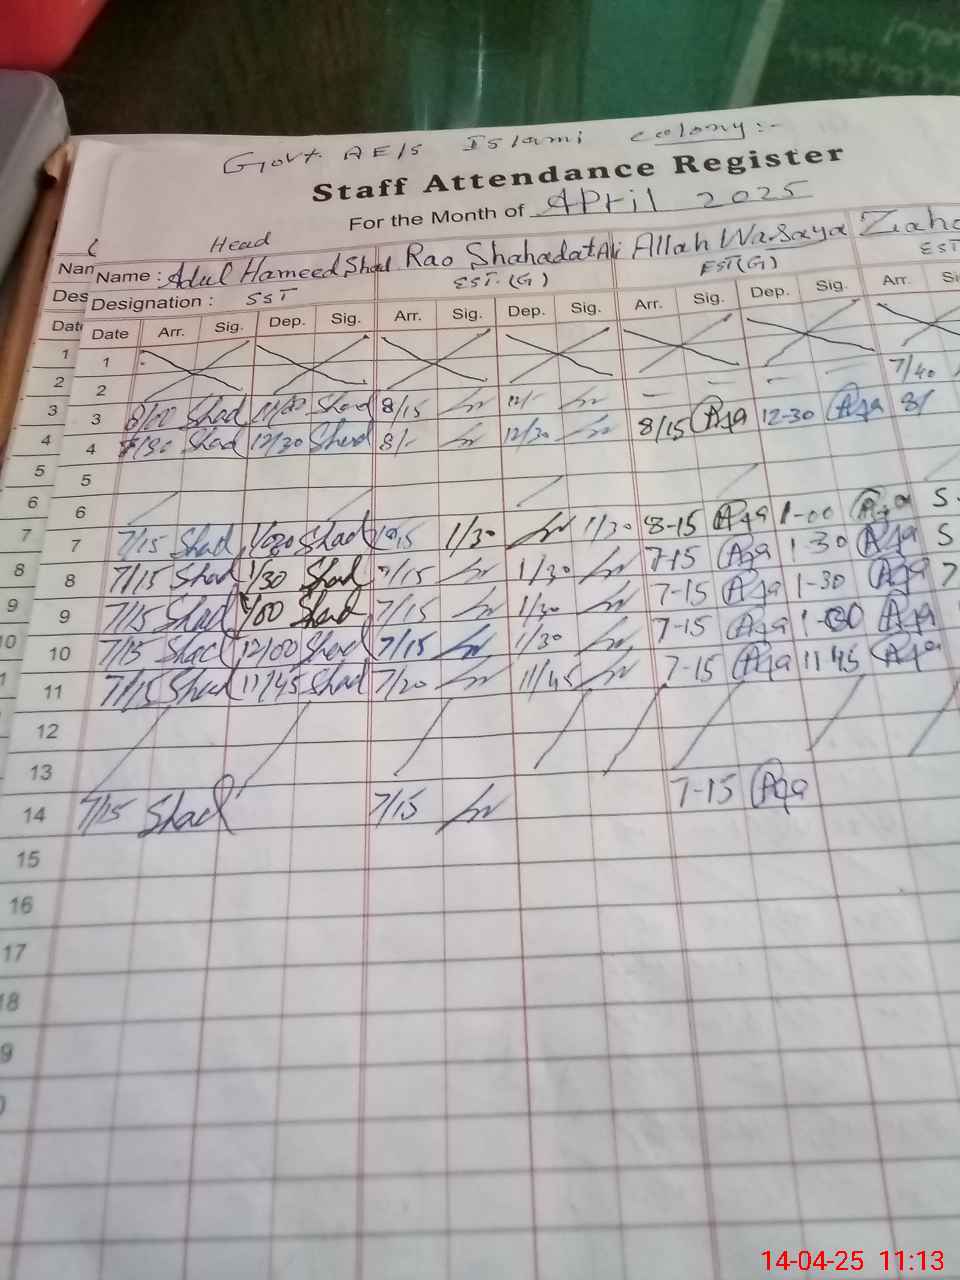 Govt. AE/S Islami colony:-
Staff Attendance Register
For the Month of April 2025
Head
Nan Name : Adul Hameed Shad Rao Shahadat Ali Allah Wasaya
Des Designation : SST EST.(G) EST(G) EST
Date Date Arr. Sig. Dep. Sig. Arr. Sig. Dep. Sig. Arr. Sig. Dep. Sig. Arr.
1 1
2 2 7/40
3 3 8/00 Shad Shad 8/15 12/-
4 4 Shad 12/30 Shad 8/- 12/30 8/15 Aqa 12-30 Aqa 8/
5 5
6 6
7 7 7/15 Shad Shad 1/30 1/30 8-15 Aqa 1-00 Aqa S
8 8 7/15 Shad 1/30 Shad 7/15 1/30 7-15 Aqa 1-30 Aqa S
9 9 7/15 Shad Shad 7/15 1/30 7-15 Aqa 1-30 Aqa 7
10 10 7/15 Shad 12/00 Shad 7/15 1/30 7-15 Aqa Aqa
11 7/15 Shad 11/45 Shad 7/20 11/45 7-15 Aqa 11 45 Aqa
12
13
14 7/15 Shad 7/15 7-15 Aqa
15
16
17
18
9
14-04-25 11:13